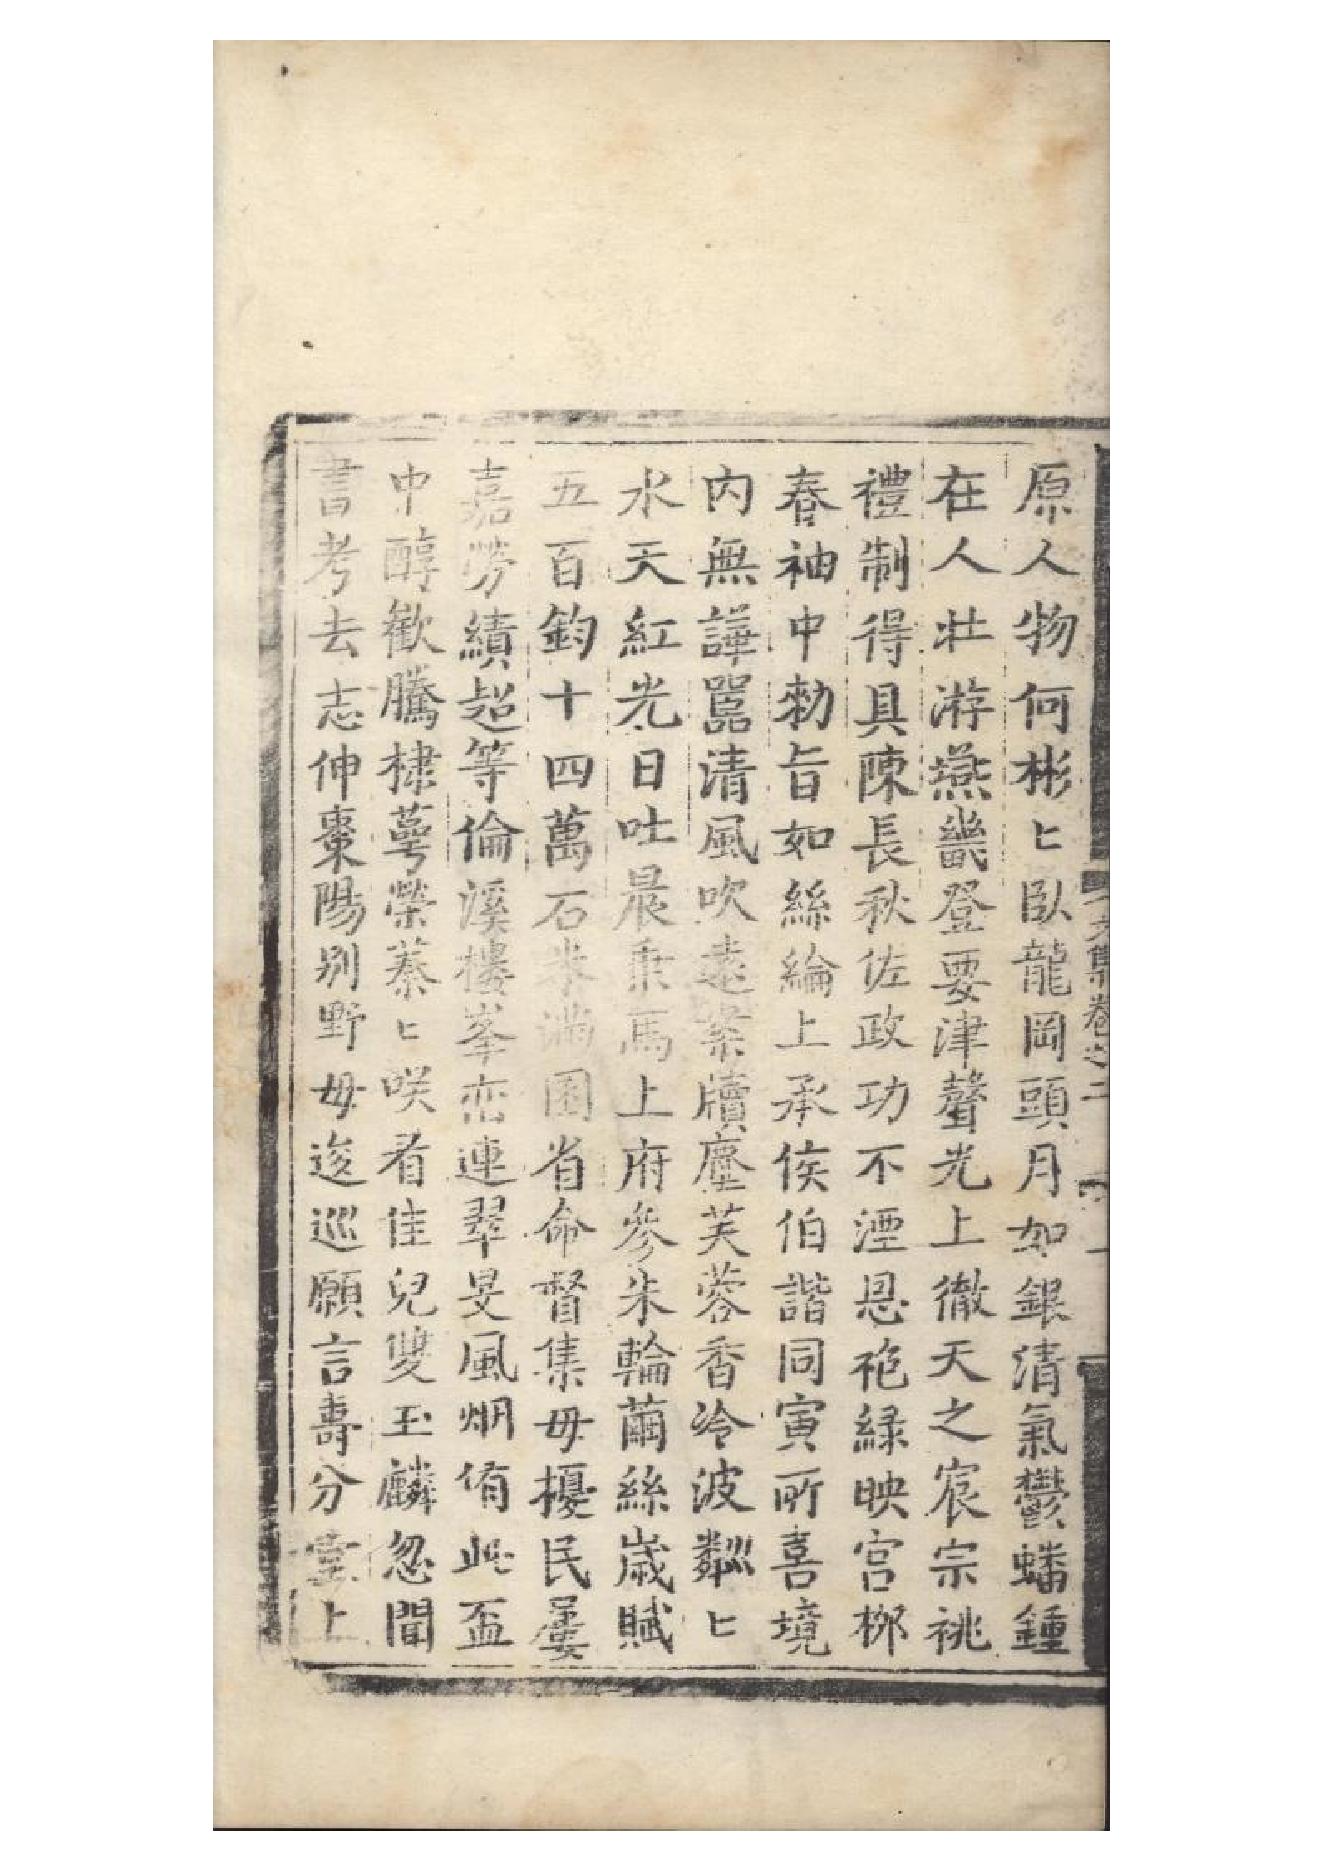 原人物何彬〻臥龍岡頭月如銀清氣鬱蟠鍾
在人壮游燕畿登要津聲光上徹天之宸宗祧
禮制得具陳長秋佐政功不湮恩袍緑映宫栁
春袖中勑旨如絲綸上承侯伯諧同寅所喜境
内無譁嚚清風吹遠案牘塵芙蓉香冷波粼〻
水天紅光日吐晨乗馬上府參朱輪繭絲歲賦
五百鈞十四萬石米滿囷省命督集毋擾民屢
嘉勞績超等倫溪樓峯巒連翠旻風烟侑此盃
中醇歡騰棣萼榮蓁〻咲看佳兒雙玉麟忽聞
書考去志伸棗陽别野毋逡巡願言壽分堂上
文集卷之二